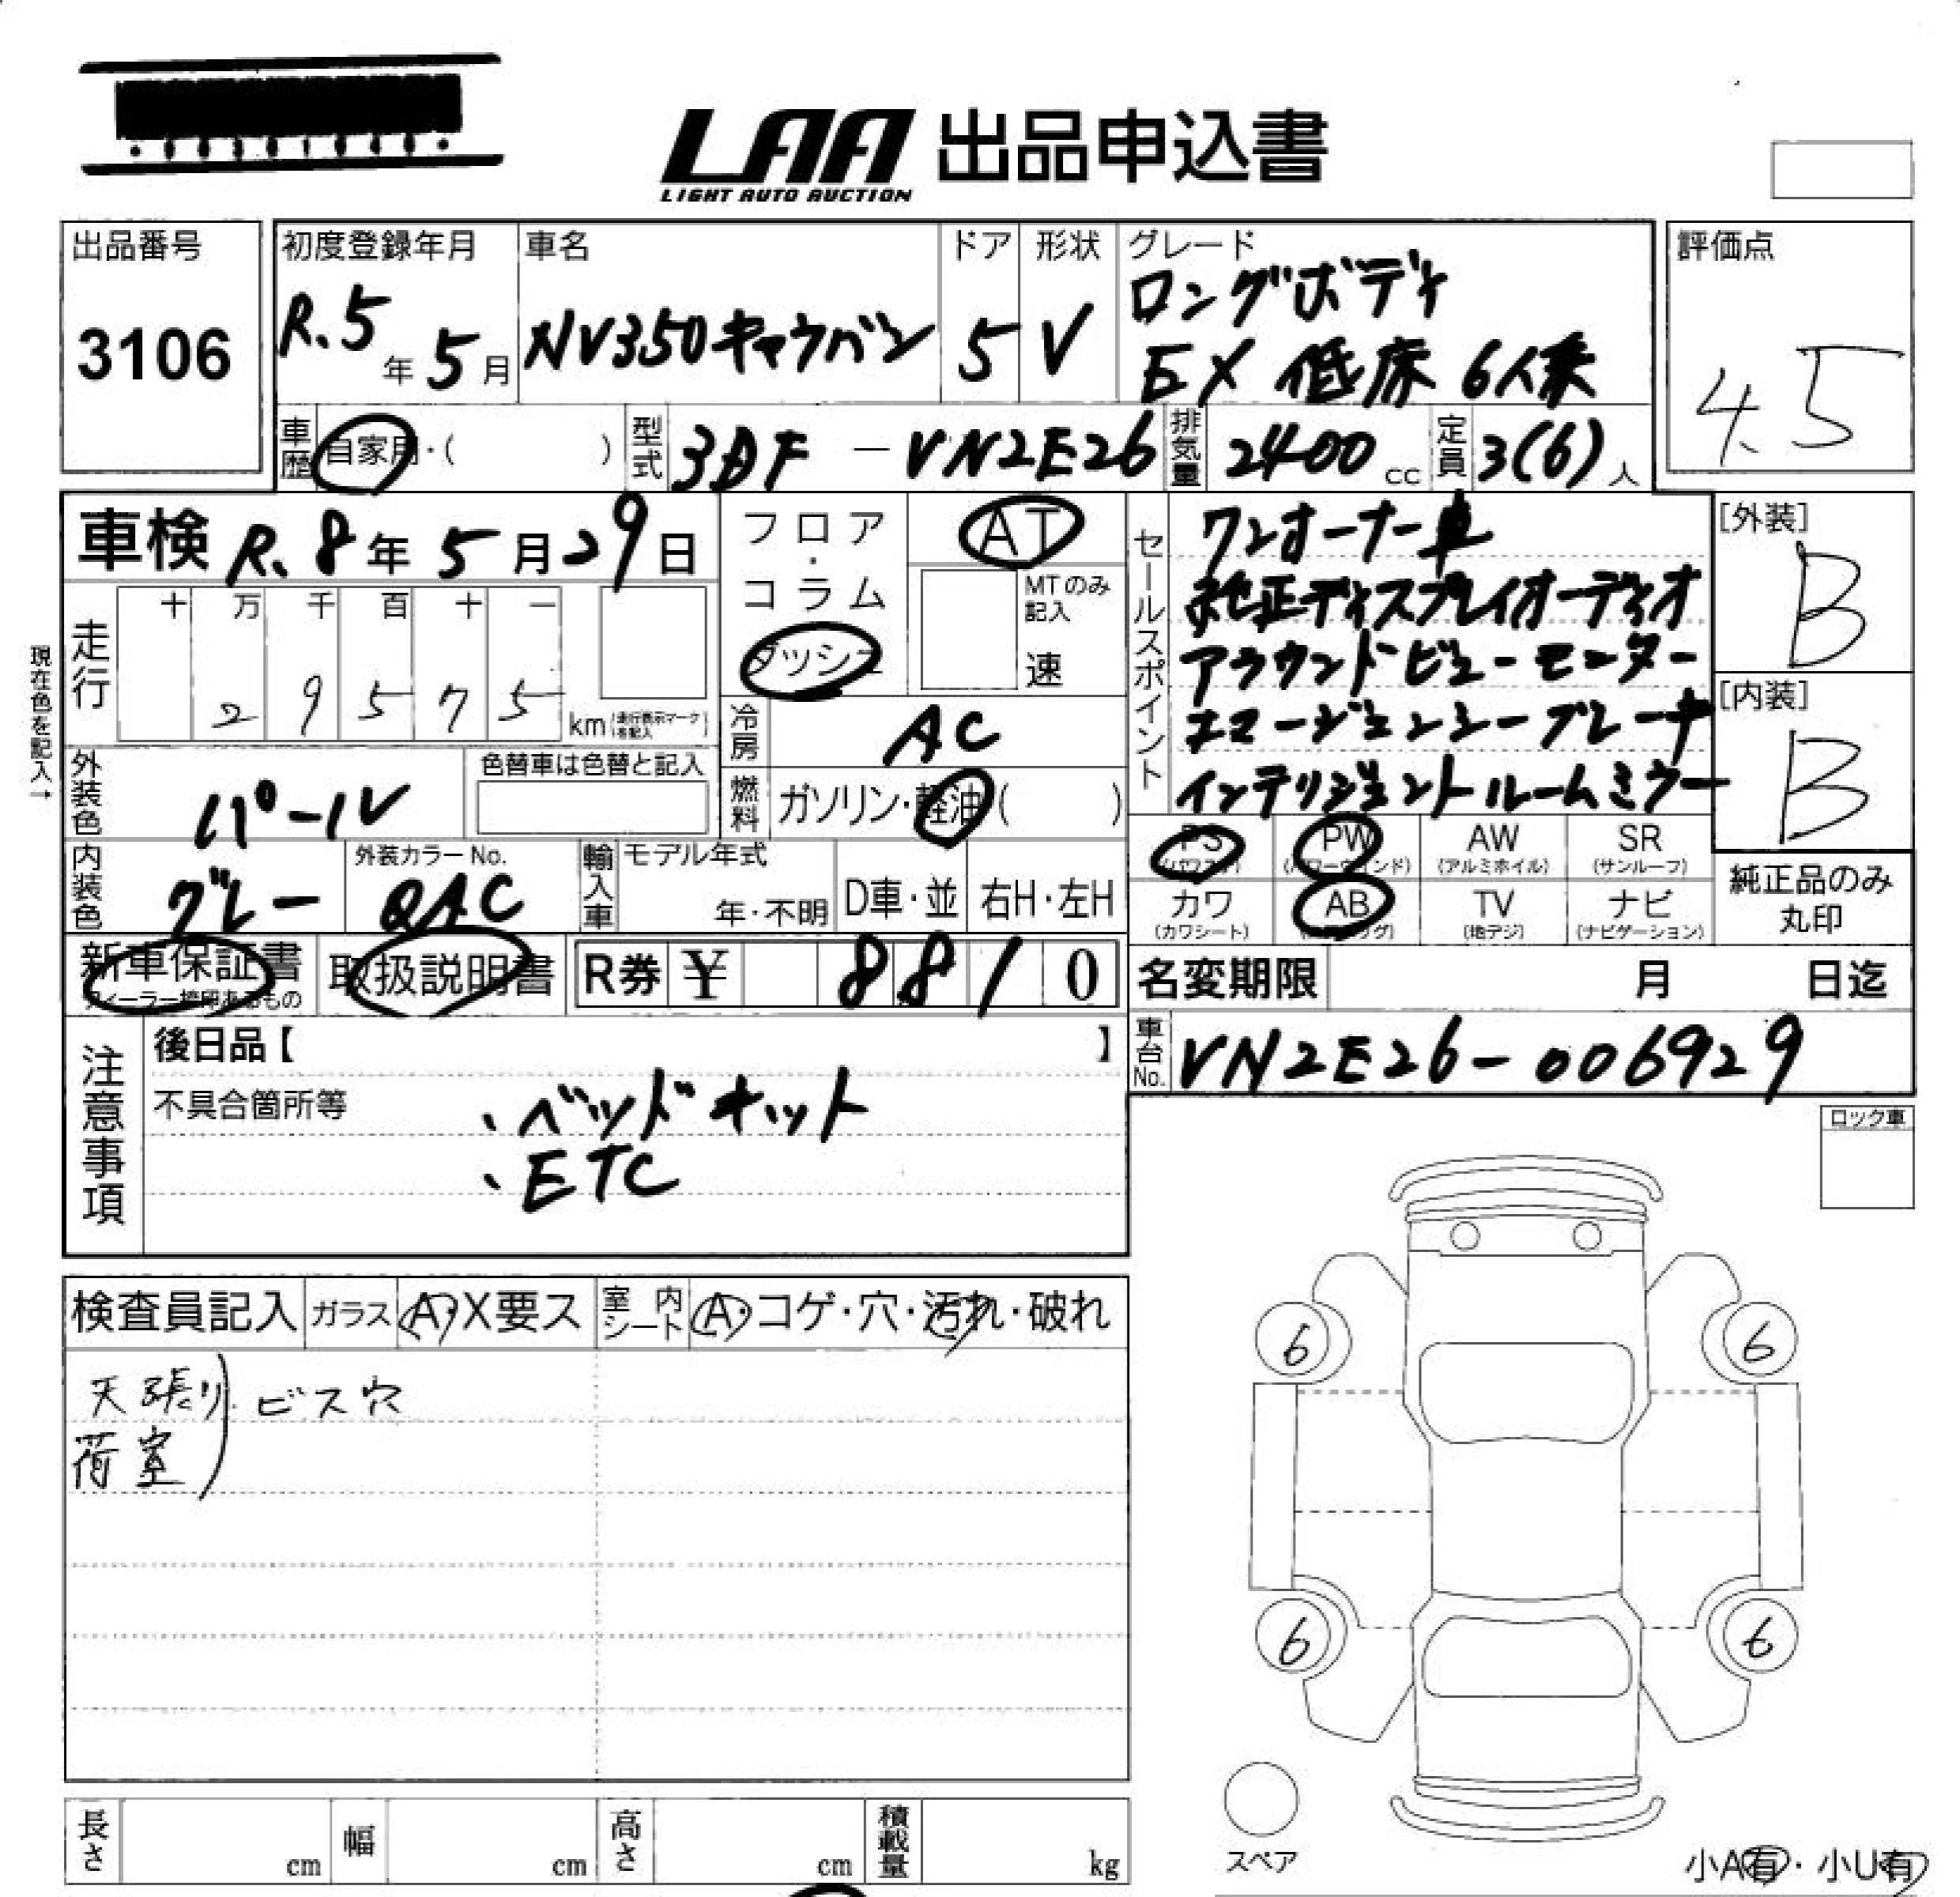 LAA 出品申込書
LIGHT AUTO AUCTION
出品番号
3106
初度登録年月
R.5年5月
車名
NV350キャラバン
ドア
5
形状
V
グレード
ロングボディ
EX 低床 6人乗
評価点
4.5
車歴
自家用・( )
型式
3DF-VN2E26
排気量
2400cc
定員
3(6)人
車検 R.8年5月29日
フロア・コラム
ダッシュ
AT
MTのみ記入
速
セールスポイント
ワンオーナー車
純正ディスプレイオーディオ
アラウンドビューモニター
エマージェンシーブレーキ
インテリジェントルームミラー
[外装]
B
[内装]
B
現在色を記入→
走行
十 万 千 百 十 一
2 9 5 7 5
km(走行表示マークを記入)
冷房
AC
外装色
パール
色替車は色替と記入
燃料
ガソリン・軽油( )
内装色
グレー
外装カラーNo.
QAC
輸入車
モデル年式
年・不明
D車・並
右H・左H
PS
(パワステ)
PW
(パワーウインド)
AW
(アルミホイル)
SR
(サンルーフ)
カワ
(カワシート)
AB
(エアバッグ)
TV
(地デジ)
ナビ
(ナビゲーション)
純正品のみ
丸印
新車保証書
ディーラー捺印あるもの
取扱説明書
R券 ¥ 8810
名変期限 月 日迄
車台No.
VN2E26-006929
注意事項
後日品【 】
不具合箇所等
・ベッドキット
・ETC
ロック車
検査員記入
ガラス
A・X要ス
室内シート
A・コゲ・穴・汚れ・破れ
天張り
荷室
ビス穴
6
6
6
6
スペア
小A有・小U有
長さ cm
幅 cm
高さ cm
積載量 kg